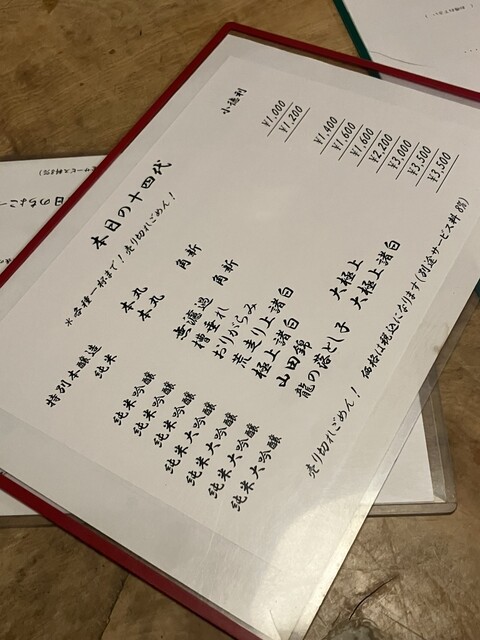 本日の十四代
*各種一杯まで!売り切れごめん!
小徳利
特別本醸造 本丸 角新 ¥1,000
純米 本丸 角新 ¥1,200
純米吟醸 無濾過 ¥1,400
純米吟醸 槽垂れ ¥1,600
純米吟醸 おりがらみ ¥1,600
純米大吟醸 荒走り上諸白 ¥2,200
純米大吟醸 極上諸白 ¥3,000
純米大吟醸 山田錦 大極上 ¥3,500
純米大吟醸 龍の落とし子 大極上諸白 ¥3,500
売り切れごめん! 価格は税込になります(別途サービス料8%)
日のちょこ
サービス料8%)